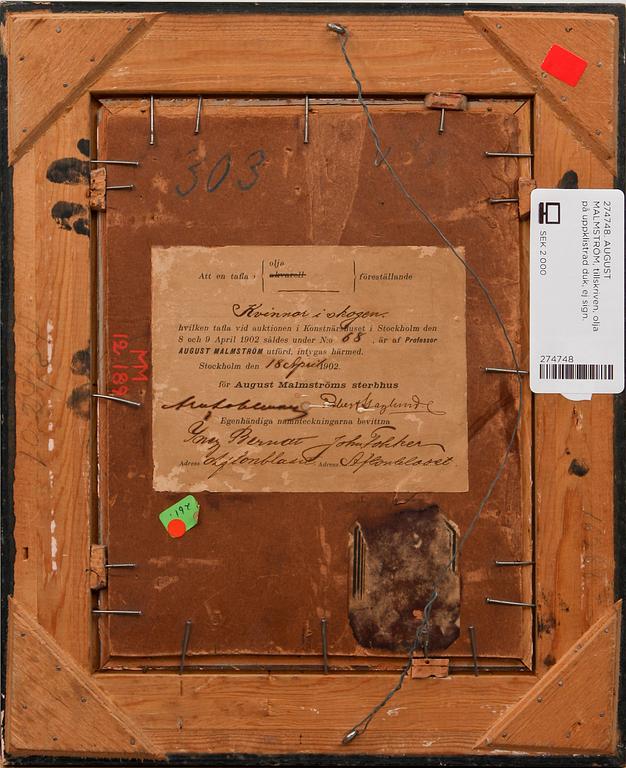 303
274748. AUGUST
MALMSTRÖM, tillskriven, olja
på uppklistrad duk, ej sign.
SEK 2 000
274748
olja
Att en tafla akvarell föreställande
Kvinnor i skogen.
hvilken tafla vid auktionen i Konstnärshuset i Stockholm den
8 och 9 April 1902 såldes under N:o 68, är af Professor
AUGUST MALMSTRÖM utförd, intygas härmed.
Stockholm den 18 April 1902.
för August Malmströms sterbhus
Egenhändiga namnteckningarna bevittna
Bernat John
Adress Aftonbladet Adress Aftonbladet.
MM
12.189
192.